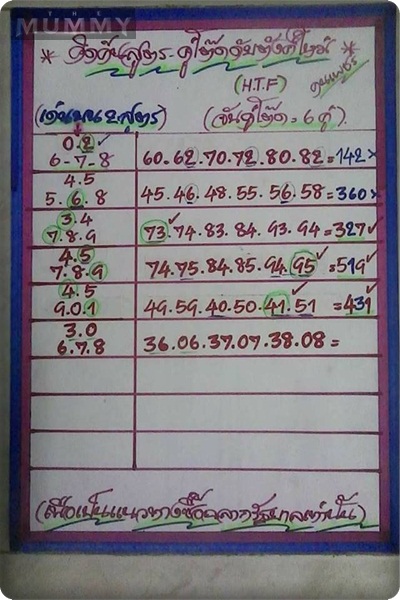 THE
MUMMY
* คิดค้นสูตร คู่โต๊ดดับทั้งคู่ใหม่ *
(H.T.F)
(เด่นบน 2 สูตร) (จับคู่โต๊ด = 6 คู่)
0.2 ✓
6-7-8 60.62.70.72.80.82=142×
4.5
5.6.8 45.46.48.55.56.58=360×
3.4
7.8.9 73.74.83.84.93.94=327✓
4.5
7.8.9 74.75.84.85.94.95=519✓
4.5
9.0.1 49.59.40.50.41.51=431✓
3.0
6.7.8 36.06.37.07.38.08=
(เพื่อเป็นแนวทางซื้อสลากรัฐบาลเท่านั้น)